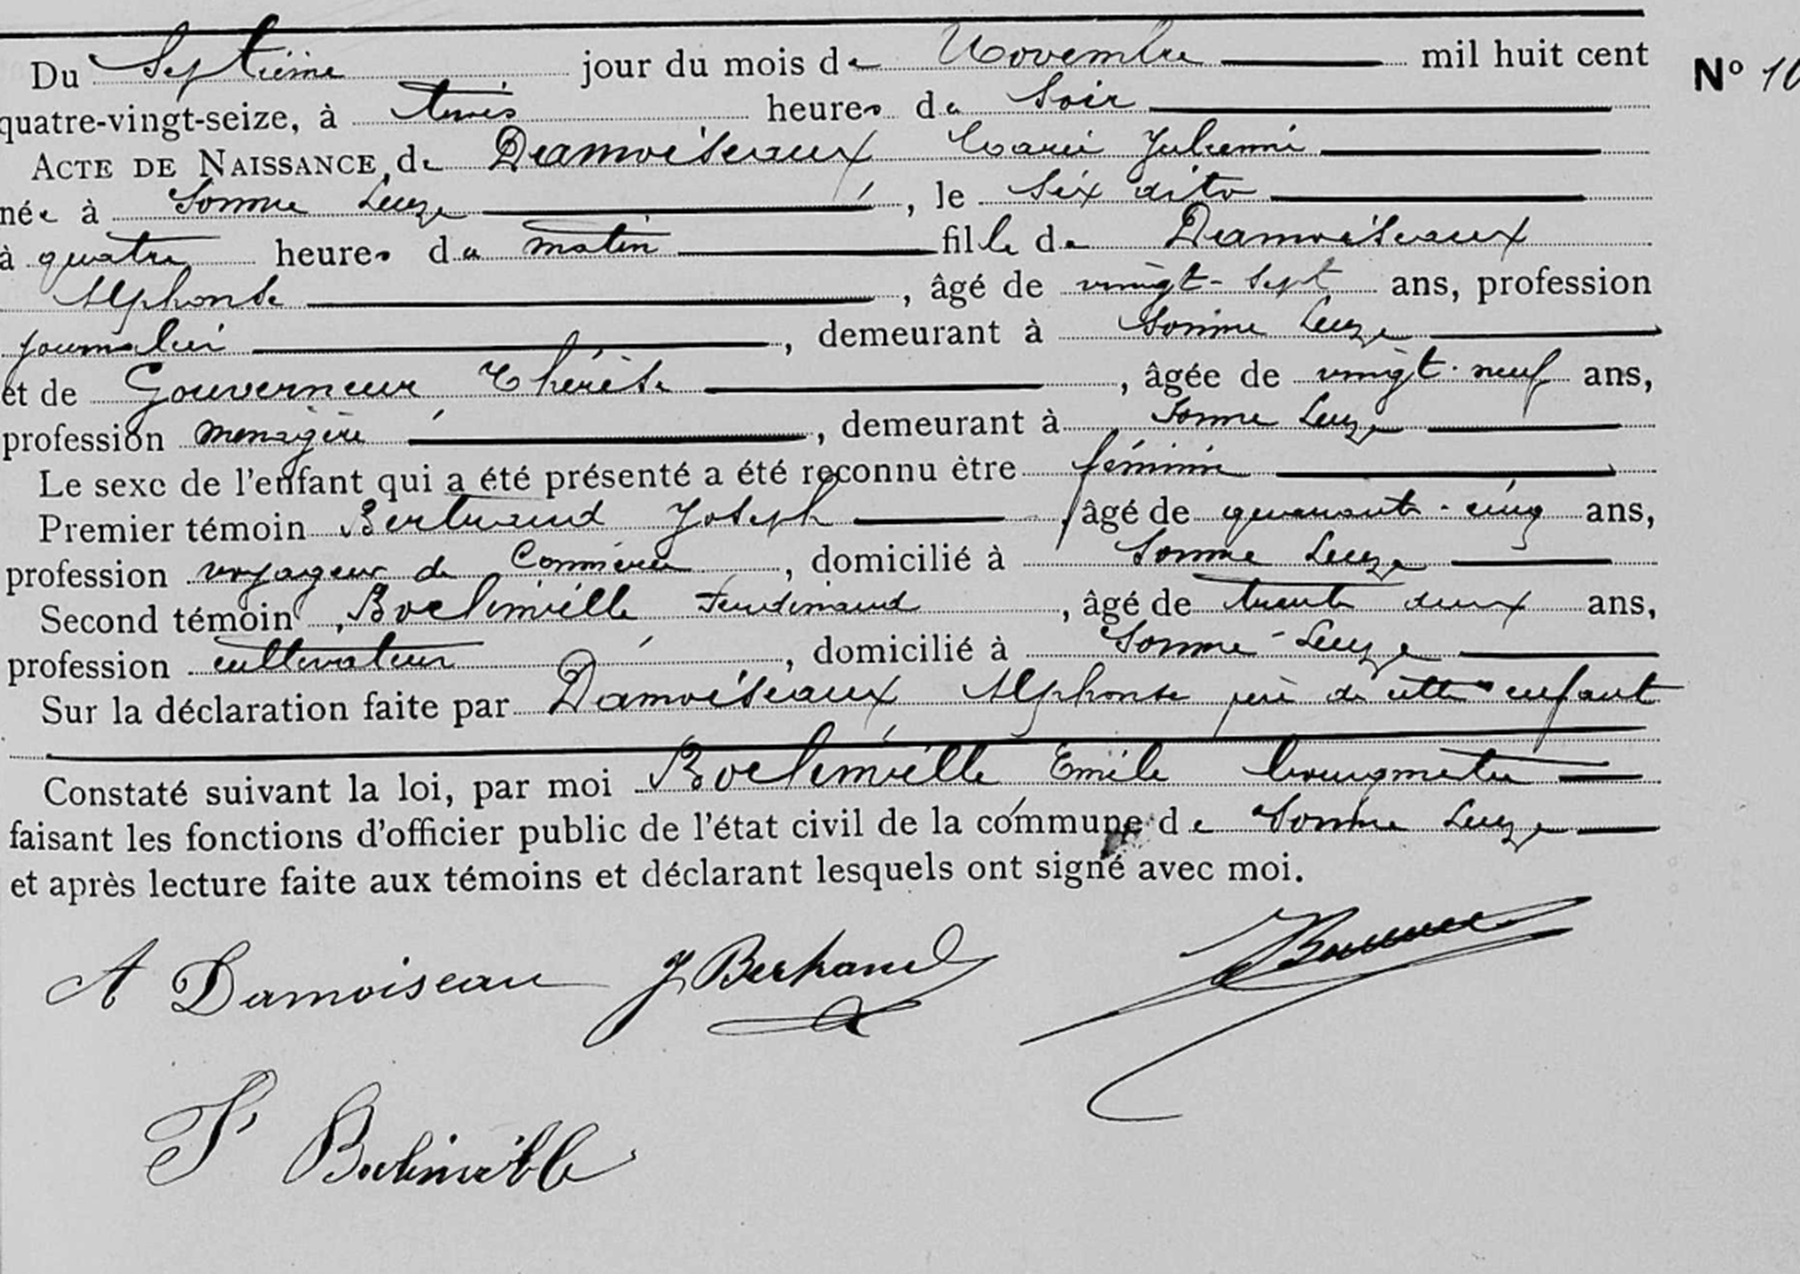 Du Septième jour du mois de Novembre mil huit cent
Nº 10
quatre-vingt-seize, à trois heures du Soir
ACTE DE NAISSANCE, de Damoiseaux Marie Julienne
née à Somme Leuze, le Six dito
à quatre heures du matin fille de Damoiseaux
Alphonse, âgé de vingt-sept ans, profession
journalier, demeurant à Somme Leuze
et de Gouverneur Thérèse, âgée de vingt-neuf ans,
profession ménagère, demeurant à Somme Leuze
Le sexe de l'enfant qui a été présenté a été reconnu être féminin
Premier témoin Bertrand Joseph, âgé de quarante-cinq ans,
profession voyageur de Commerce, domicilié à Somme Leuze
Second témoin, Bochenville Ferdinand, âgé de trente deux ans,
profession cultivateur, domicilié à Somme-Leuze
Sur la déclaration faite par Damoiseaux Alphonse père de cette enfant
Constaté suivant la loi, par moi Emile bourgmestre
faisant les fonctions d'officier public de l'état civil de la commune de Somme Leuze
et après lecture faite aux témoins et déclarant lesquels ont signé avec moi.
A Damoiseau J Bertrand
F